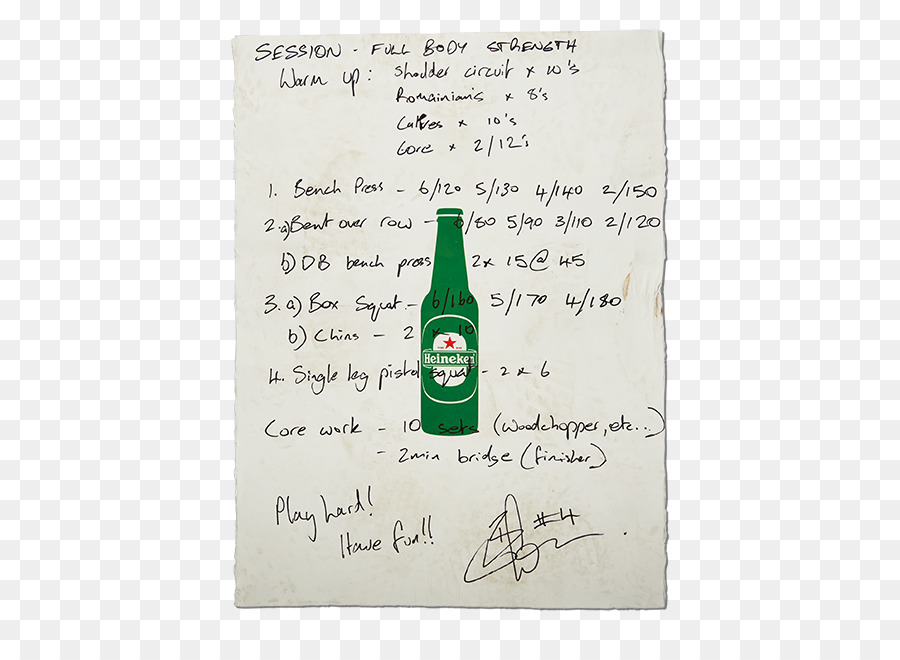 SESSION - FULL BODY STRENGTH
Warm up: Shoulder circuit x 10's
Romainian's x 8's
Calves x 10's
Core x 2/12's
1. Bench Press - 6/120 5/130 4/140 2/150
2.a) Bent over row - 6/80 5/90 3/110 2/120
b) DB bench press 2x 15@ 45
3. a) Box Squat - 6/160 5/170 4/180
b) Chins - 2 x 10
Heineken
4. Single leg pistol squat - 2 x 6
Core work - 10 sets (woodchopper, etc..)
- 2min bridge (finisher)
Play hard!
Have fun!!
#4